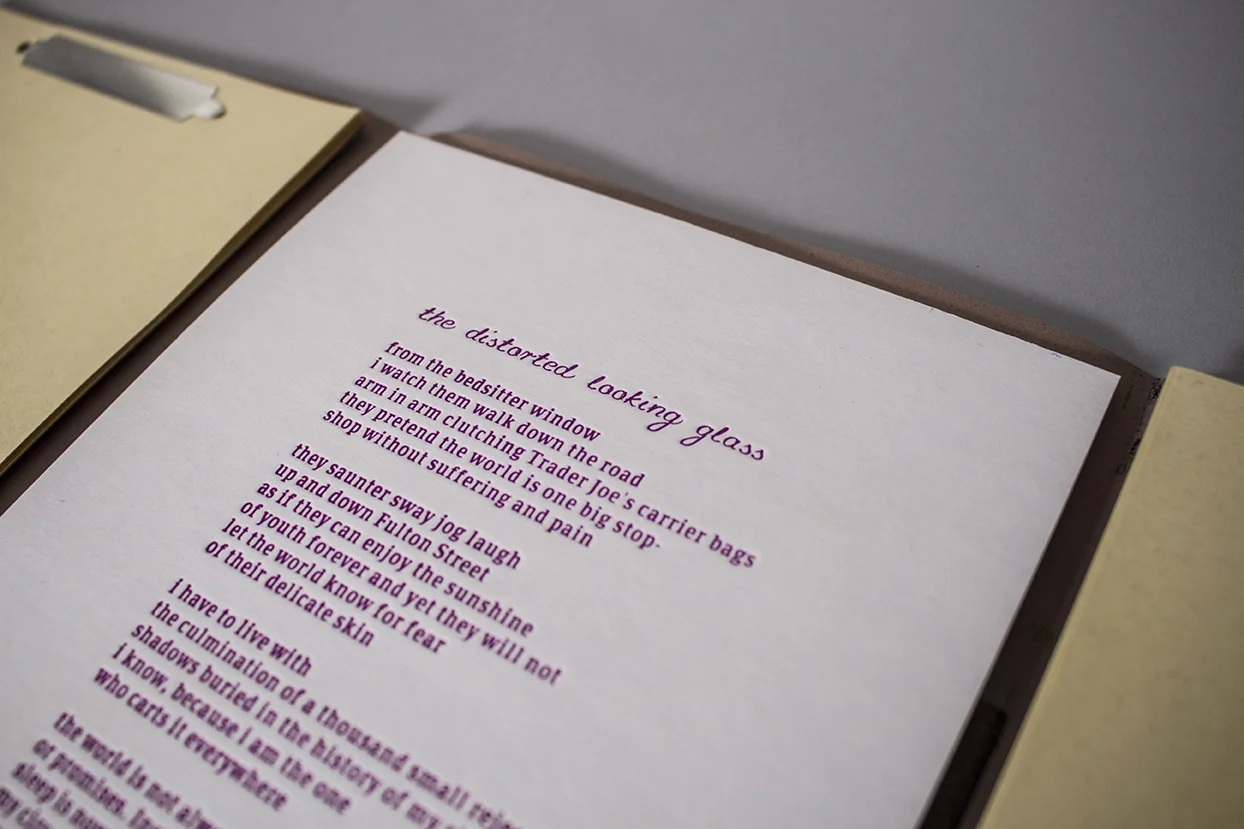 the distorted looking glass
from the bedsitter window
i watch them walk down the road
arm in arm clutching Trader Joe's carrier bags
they pretend the world is one big stop-
shop without suffering and pain
they saunter sway jog laugh
up and down Fulton Street
as if they can enjoy the sunshine
of youth forever and yet they will not
let the world know for fear
of their delicate skin
i have to live with
the culmination of a thousand small
shadows buried in the history of my
i know, because i am the one
who carts it everywhere
the world is not
or promises.
sleep is